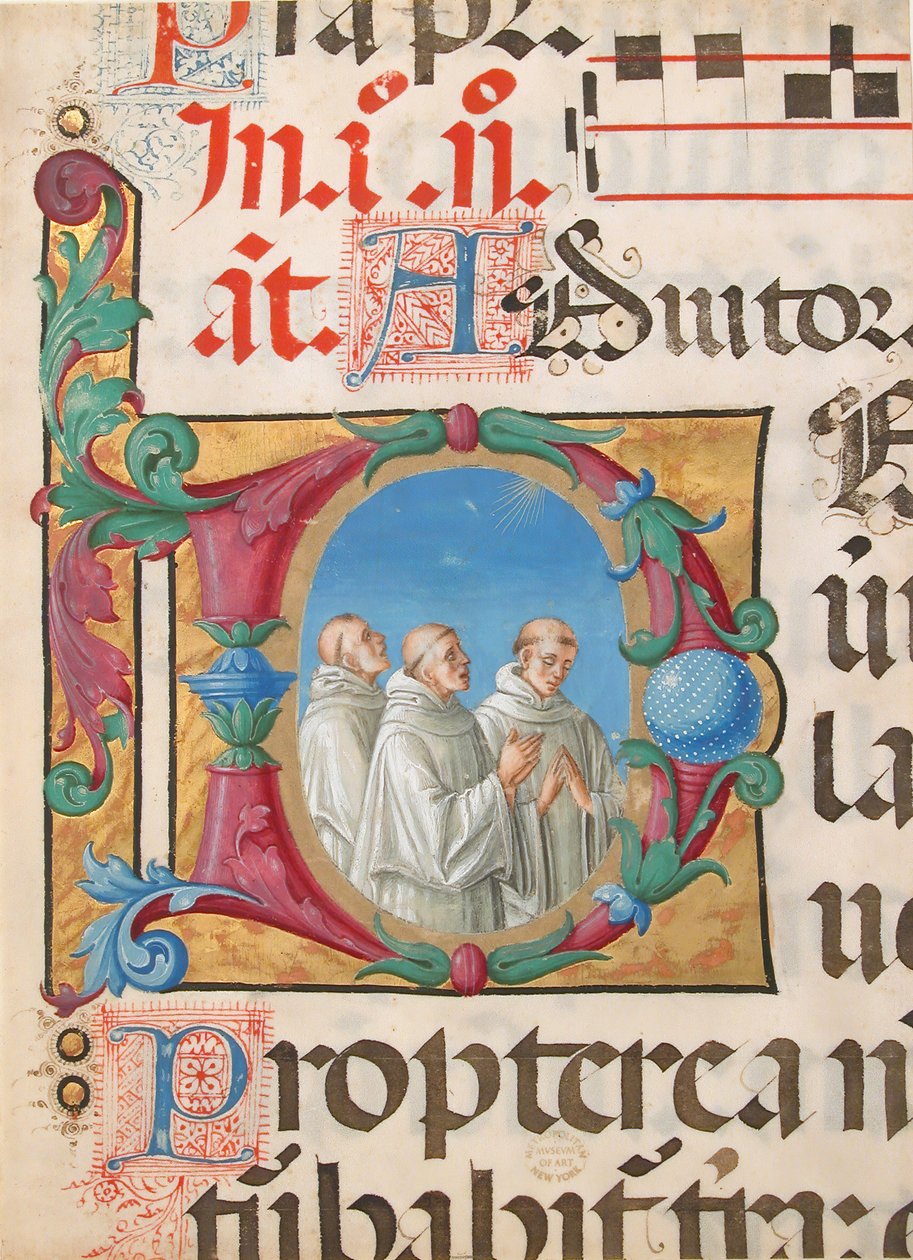 In.i .ii.
ãt. Adiutor
E
in
la
ue
Propterea n
tũbabit̃ tr̃a: e
METROPOLITAN
MVSEVM
OF ART
NEW YORK